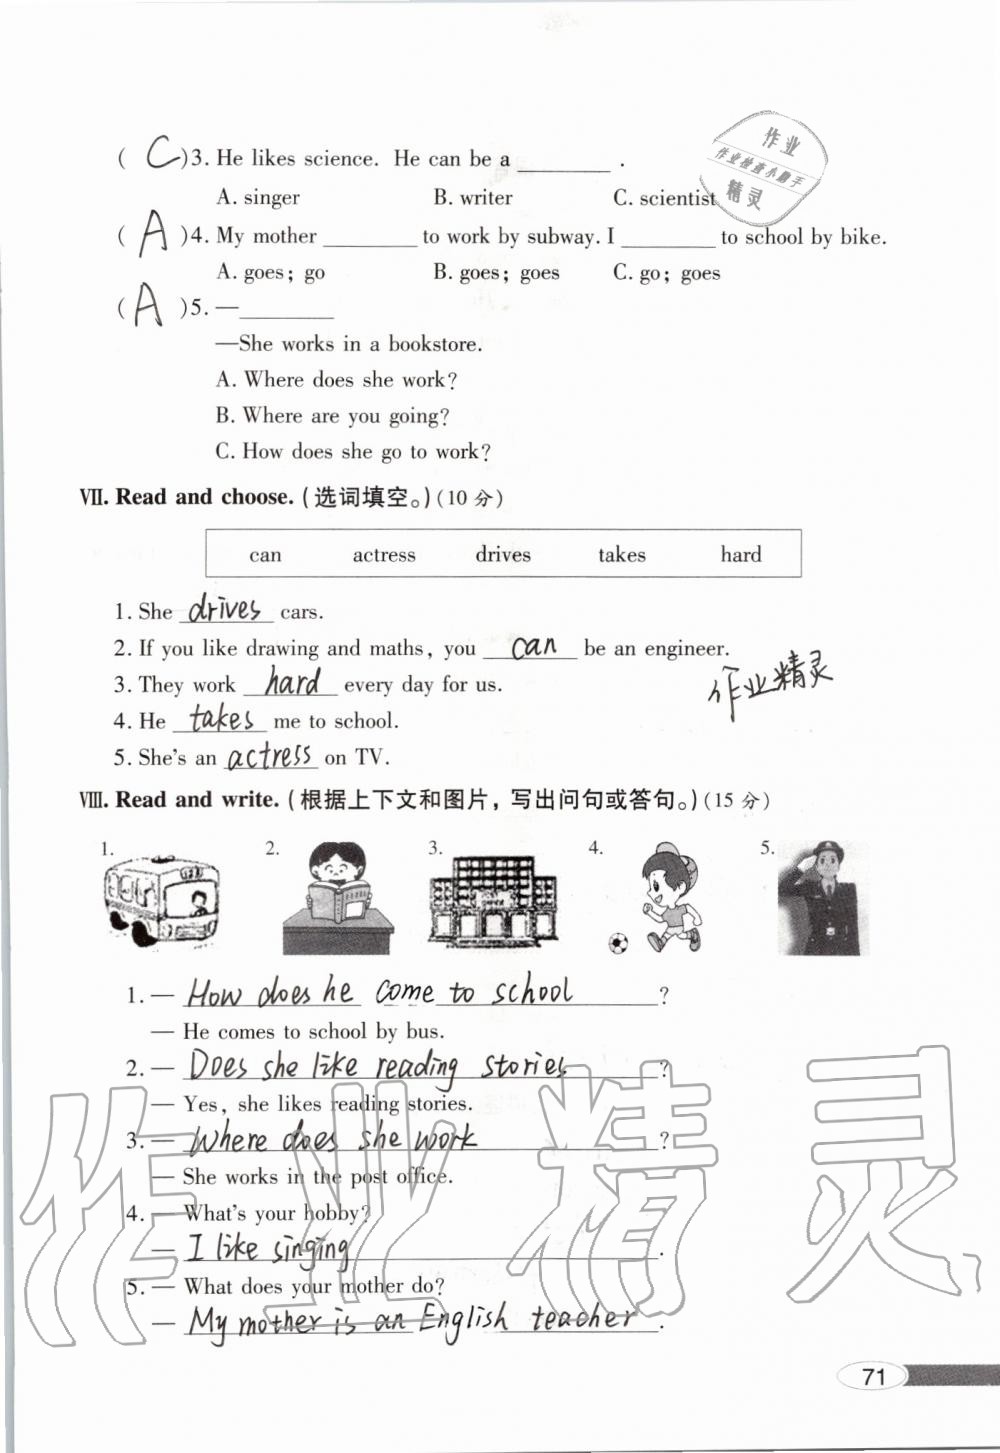 ( C )3. He likes science. He can be a ________ .
A. singer B. writer C. scientist
作业
作业检查小助手
精灵
( A )4. My mother ________ to work by subway. I ________ to school by bike.
A. goes; go B. goes; goes C. go; goes
( A )5. —________
—She works in a bookstore.
A. Where does she work?
B. Where are you going?
C. How does she go to work?
Ⅶ. Read and choose. (选词填空。)(10 分)
can actress drives takes hard
1. She drives cars.
2. If you like drawing and maths, you can be an engineer.
3. They work hard every day for us.
作业精灵
4. He takes me to school.
5. She's an actress on TV.
Ⅷ. Read and write. (根据上下文和图片，写出问句或答句。)(15 分)
1. 2. 3. 4. 5.
1. — How does he come to school ?
— He comes to school by bus.
2. — Does she like reading stories ?
— Yes, she likes reading stories.
3. — Where does she work ?
— She works in the post office.
4. — What's your hobby?
— I like singing .
5. — What does your mother do?
— My mother is an English teacher .
作业精灵
71